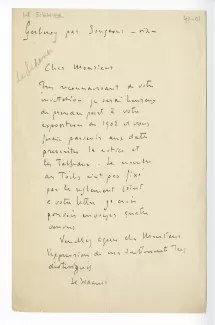 LE SIDANER
Gerberoy par Songeons - oise
Le Sidaner
Cher Monsieur
Très reconnaissant de votre
invitation je serai heureux
de prendre part à votre
exposition de 1908 et vous
ferai parvenir aux dates
prescrites la notice et
les Tableaux. Le nombre
de Toiles n'est pas fixé
par le règlement joint
à votre lettre je
envoyer quatre
Veuillez agréer cher Monsieur
l'expression de mes sentiments Très
distingués
Le Sidaner